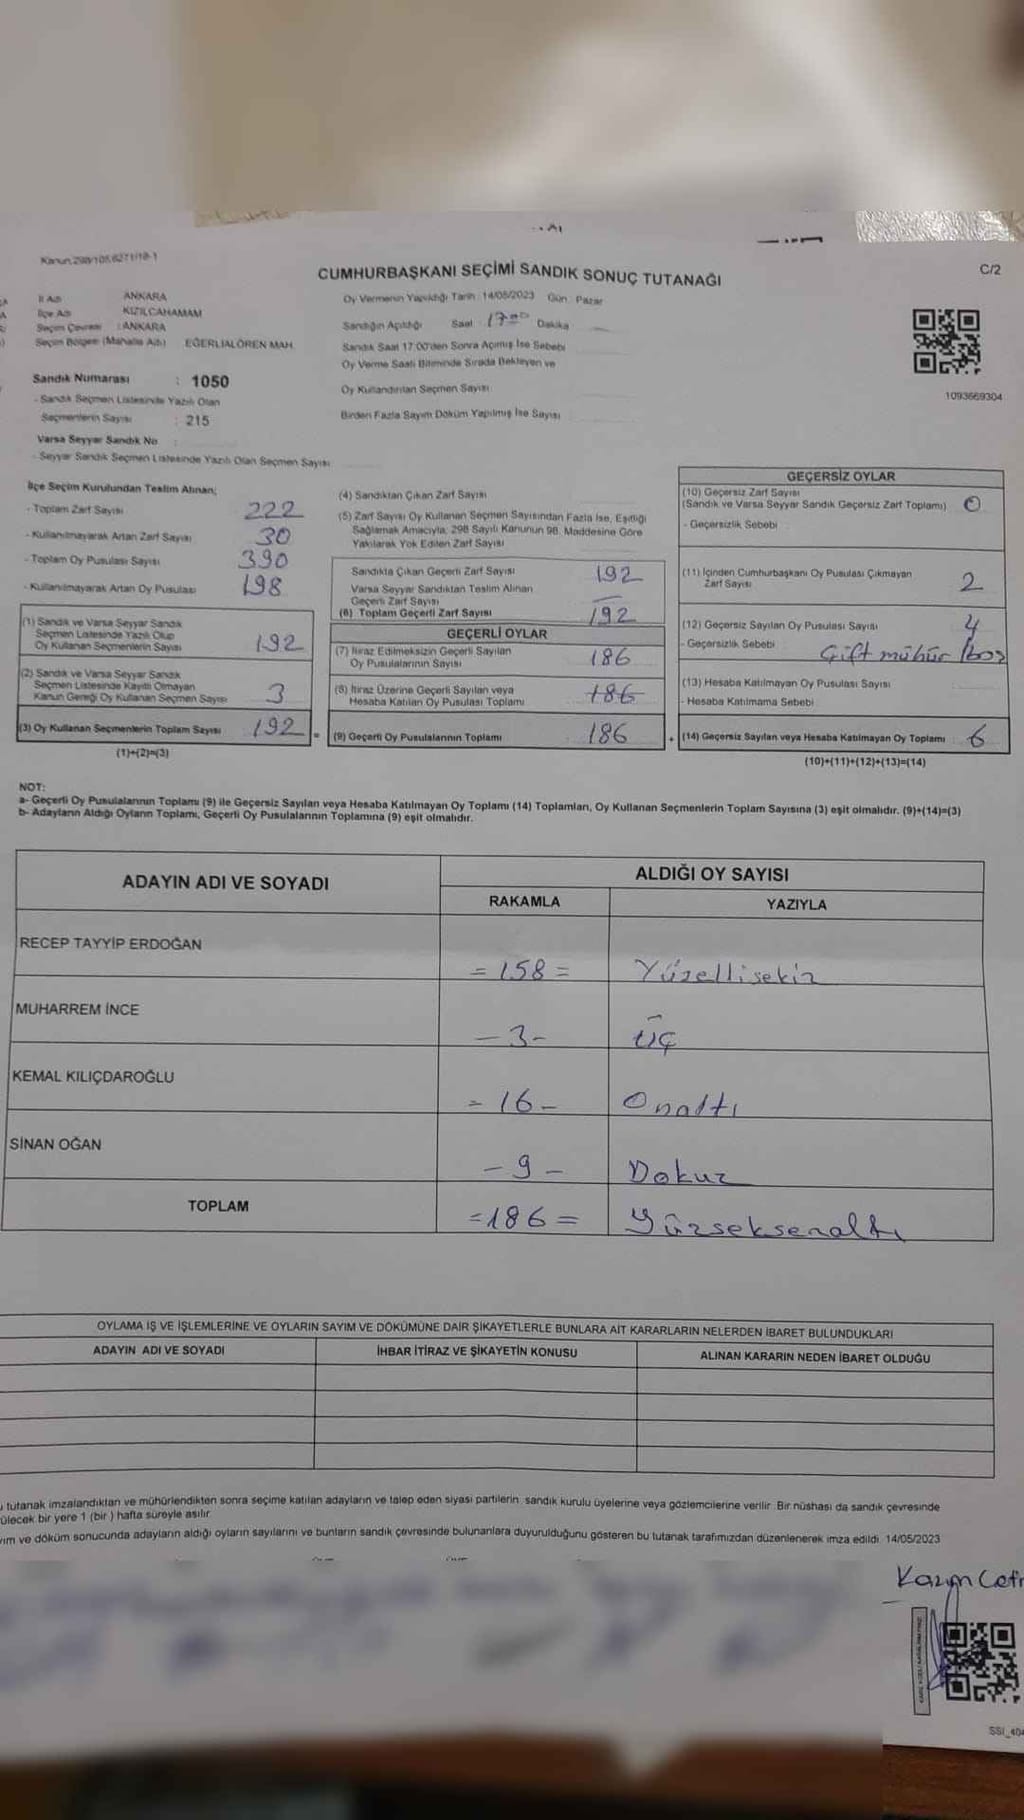 Kanun.298/105.6271/18-1
CUMHURBAŞKANI SEÇİMİ SANDIK SONUÇ TUTANAĞI
C/2
İl Adı ANKARA
İlçe Adı KIZILCAHAMAM
Seçim Çevresi : ANKARA
Seçim Bölgesi (Mahalle Adı) EĞERLİALÖREN MAH.
Sandık Numarası : 1050
- Sandık Seçmen Listesinde Yazılı Olan
Seçmenlerin Sayısı : 215
Varsa Seyyar Sandık No :
- Seyyar Sandık Seçmen Listesinde Yazılı Olan Seçmen Sayısı
Oy Vermenin Yapıldığı Tarih : 14/05/2023 Gün : Pazar
Sandığın Açıldığı Saat : 17 00 Dakika
Sandık Saat 17:00'den Sonra Açılmış İse Sebebi
Oy Verme Saati Bitiminde Sırada Bekleyen ve
Oy Kullandırılan Seçmen Sayısı
Birden Fazla Sayım Döküm Yapılmış İse Sayısı
1093669304
İlçe Seçim Kurulundan Teslim Alınan;
- Toplam Zarf Sayısı 222
- Kullanılmayarak Artan Zarf Sayısı 30
- Toplam Oy Pusulası Sayısı 390
- Kullanılmayarak Artan Oy Pusulası 198
(1) Sandık ve Varsa Seyyar Sandık
Seçmen Listesinde Yazılı Olup
Oy Kullanan Seçmenlerin Sayısı 192
(2) Sandık ve Varsa Seyyar Sandık
Seçmen Listesinde Kayıtlı Olmayan
Kanun Gereği Oy Kullanan Seçmen Sayısı 3
(3) Oy Kullanan Seçmenlerin Toplam Sayısı 192 =
(1)+(2)=(3)
(4) Sandıktan Çıkan Zarf Sayısı
(5) Zarf Sayısı Oy Kullanan Seçmen Sayısından Fazla İse, Eşitliği
Sağlamak Amacıyla; 298 Sayılı Kanunun 98. Maddesine Göre
Yakılarak Yok Edilen Zarf Sayısı
Sandıkta Çıkan Geçerli Zarf Sayısı 192
Varsa Seyyar Sandıktan Teslim Alınan
Geçerli Zarf Sayısı
(6) Toplam Geçerli Zarf Sayısı 192
GEÇERLİ OYLAR
(7) İtiraz Edilmeksizin Geçerli Sayılan
Oy Pusulalarının Sayısı 186
(8) İtiraz Üzerine Geçerli Sayılan veya
Hesaba Katılan Oy Pusulası Toplamı 186
(9) Geçerli Oy Pusulalarının Toplamı 186 +
GEÇERSİZ OYLAR
(10) Geçersiz Zarf Sayısı
(Sandık ve Varsa Seyyar Sandık Geçersiz Zarf Toplamı) 0
- Geçersizlik Sebebi
(11) İçinden Cumhurbaşkanı Oy Pusulası Çıkmayan
Zarf Sayısı 2
(12) Geçersiz Sayılan Oy Pusulası Sayısı 4
- Geçersizlik Sebebi Çift mühür / boş
(13) Hesaba Katılmayan Oy Pusulası Sayısı
- Hesaba Katılmama Sebebi
(14) Geçersiz Sayılan veya Hesaba Katılmayan Oy Toplamı 6
(10)+(11)+(12)+(13)=(14)
NOT:
a- Geçerli Oy Pusulalarının Toplamı (9) ile Geçersiz Sayılan veya Hesaba Katılmayan Oy Toplamı (14) Toplamları, Oy Kullanan Seçmenlerin Toplam Sayısına (3) eşit olmalıdır. (9)+(14)=(3)
b- Adayların Aldığı Oyların Toplamı, Geçerli Oy Pusulalarının Toplamına (9) eşit olmalıdır.
ADAYIN ADI VE SOYADI ALDIĞI OY SAYISI
RAKAMLA YAZIYLA
RECEP TAYYİP ERDOĞAN = 158 = Yüzellisekiz
MUHARREM İNCE - 3 - Üç
KEMAL KILIÇDAROĞLU = 16 - Onaltı
SİNAN OĞAN - 9 - Dokuz
TOPLAM = 186 = Yüzseksenaltı
OYLAMA İŞ VE İŞLEMLERİNE VE OYLARIN SAYIM VE DÖKÜMÜNE DAİR ŞİKAYETLERLE BUNLARA AİT KARARLARIN NELERDEN İBARET BULUNDUKLARI
ADAYIN ADI VE SOYADI İHBAR İTİRAZ VE ŞİKAYETİN KONUSU ALINAN KARARIN NEDEN İBARET OLDUĞU
tutanak imzalandıktan ve mühürlendikten sonra seçime katılan adayların ve talep eden siyasi partilerin sandık kurulu üyelerine veya gözlemcilerine verilir. Bir nüshası da sandık çevresinde
ülecek bir yere 1 (bir) hafta süreyle asılır.
yım ve döküm sonucunda adayların aldığı oyların sayılarını ve bunların sandık çevresinde bulunanlara duyurulduğunu gösteren bu tutanak tarafımızdan düzenlenerek imza edildi. 14/05/2023
SSI_40